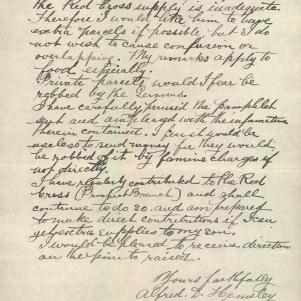 the Red Cross supply is inadequate.
Therefore I would like him to have
extra parcels if possible, but I do
not wish to cause confusion or
overlapping. My remarks apply to
food especially.
Private parcels would I fear be
robbed by the Germans.
I have carefully perused the pamphlet
sent and am pleased with the information
therein contained. I fear it would be
useless to send money for they would
be robbed of it by famine charges if
not directly.
I have regularly contributed to the Red
Cross (Branch) and shall
continue to do so and am prepared
to make direct contributions if I can
get extra supplies to my son.
I would be pleased to receive direction
on the point raised.
Yours faithfully
Alfred D. Hemsley